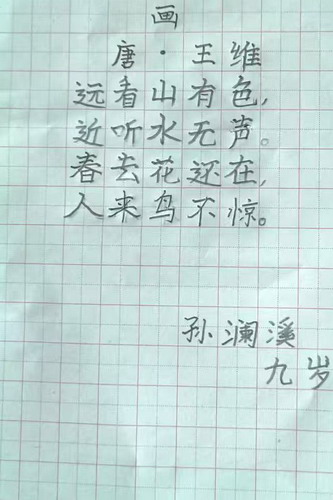 画
唐·王维
远看山有色,
近听水无声。
春去花还在,
人来鸟不惊。
孙澜溪
九岁